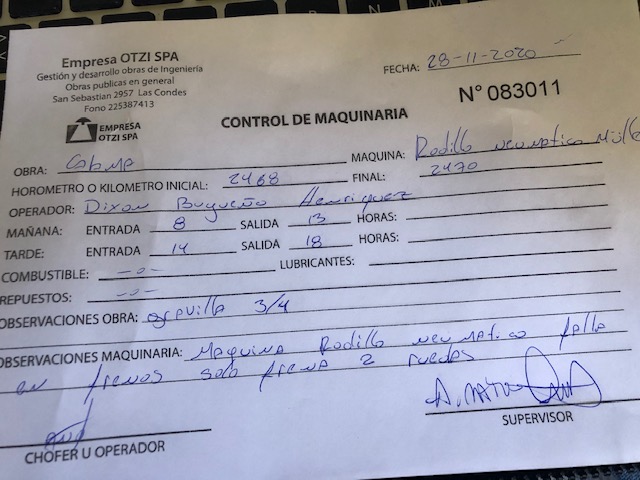 Empresa OTZI SPA
Gestión y desarrollo obras de Ingeniería
Obras publicas en general
San Sebastián 2957 Las Condes
Fono 225387413
EMPRESA
OTZI SPA
FECHA: 28-11-2020
N° 083011
CONTROL DE MAQUINARIA
OBRA: MAQUINA: Rodillo neumatico
HOROMETRO O KILOMETRO INICIAL: 2468 FINAL: 2470
OPERADOR: Dixon Bugueño Henriquez
MAÑANA: ENTRADA 8 SALIDA 13 HORAS:
TARDE: ENTRADA 14 SALIDA 18 HORAS:
COMBUSTIBLE: -- LUBRICANTES:
REPUESTOS: ---
OBSERVACIONES OBRA: 3/4
OBSERVACIONES MAQUINARIA: Maquina Rodillo neumatico falla
en frenos solo frena 2 ruedas
CHOFER U OPERADOR
SUPERVISOR